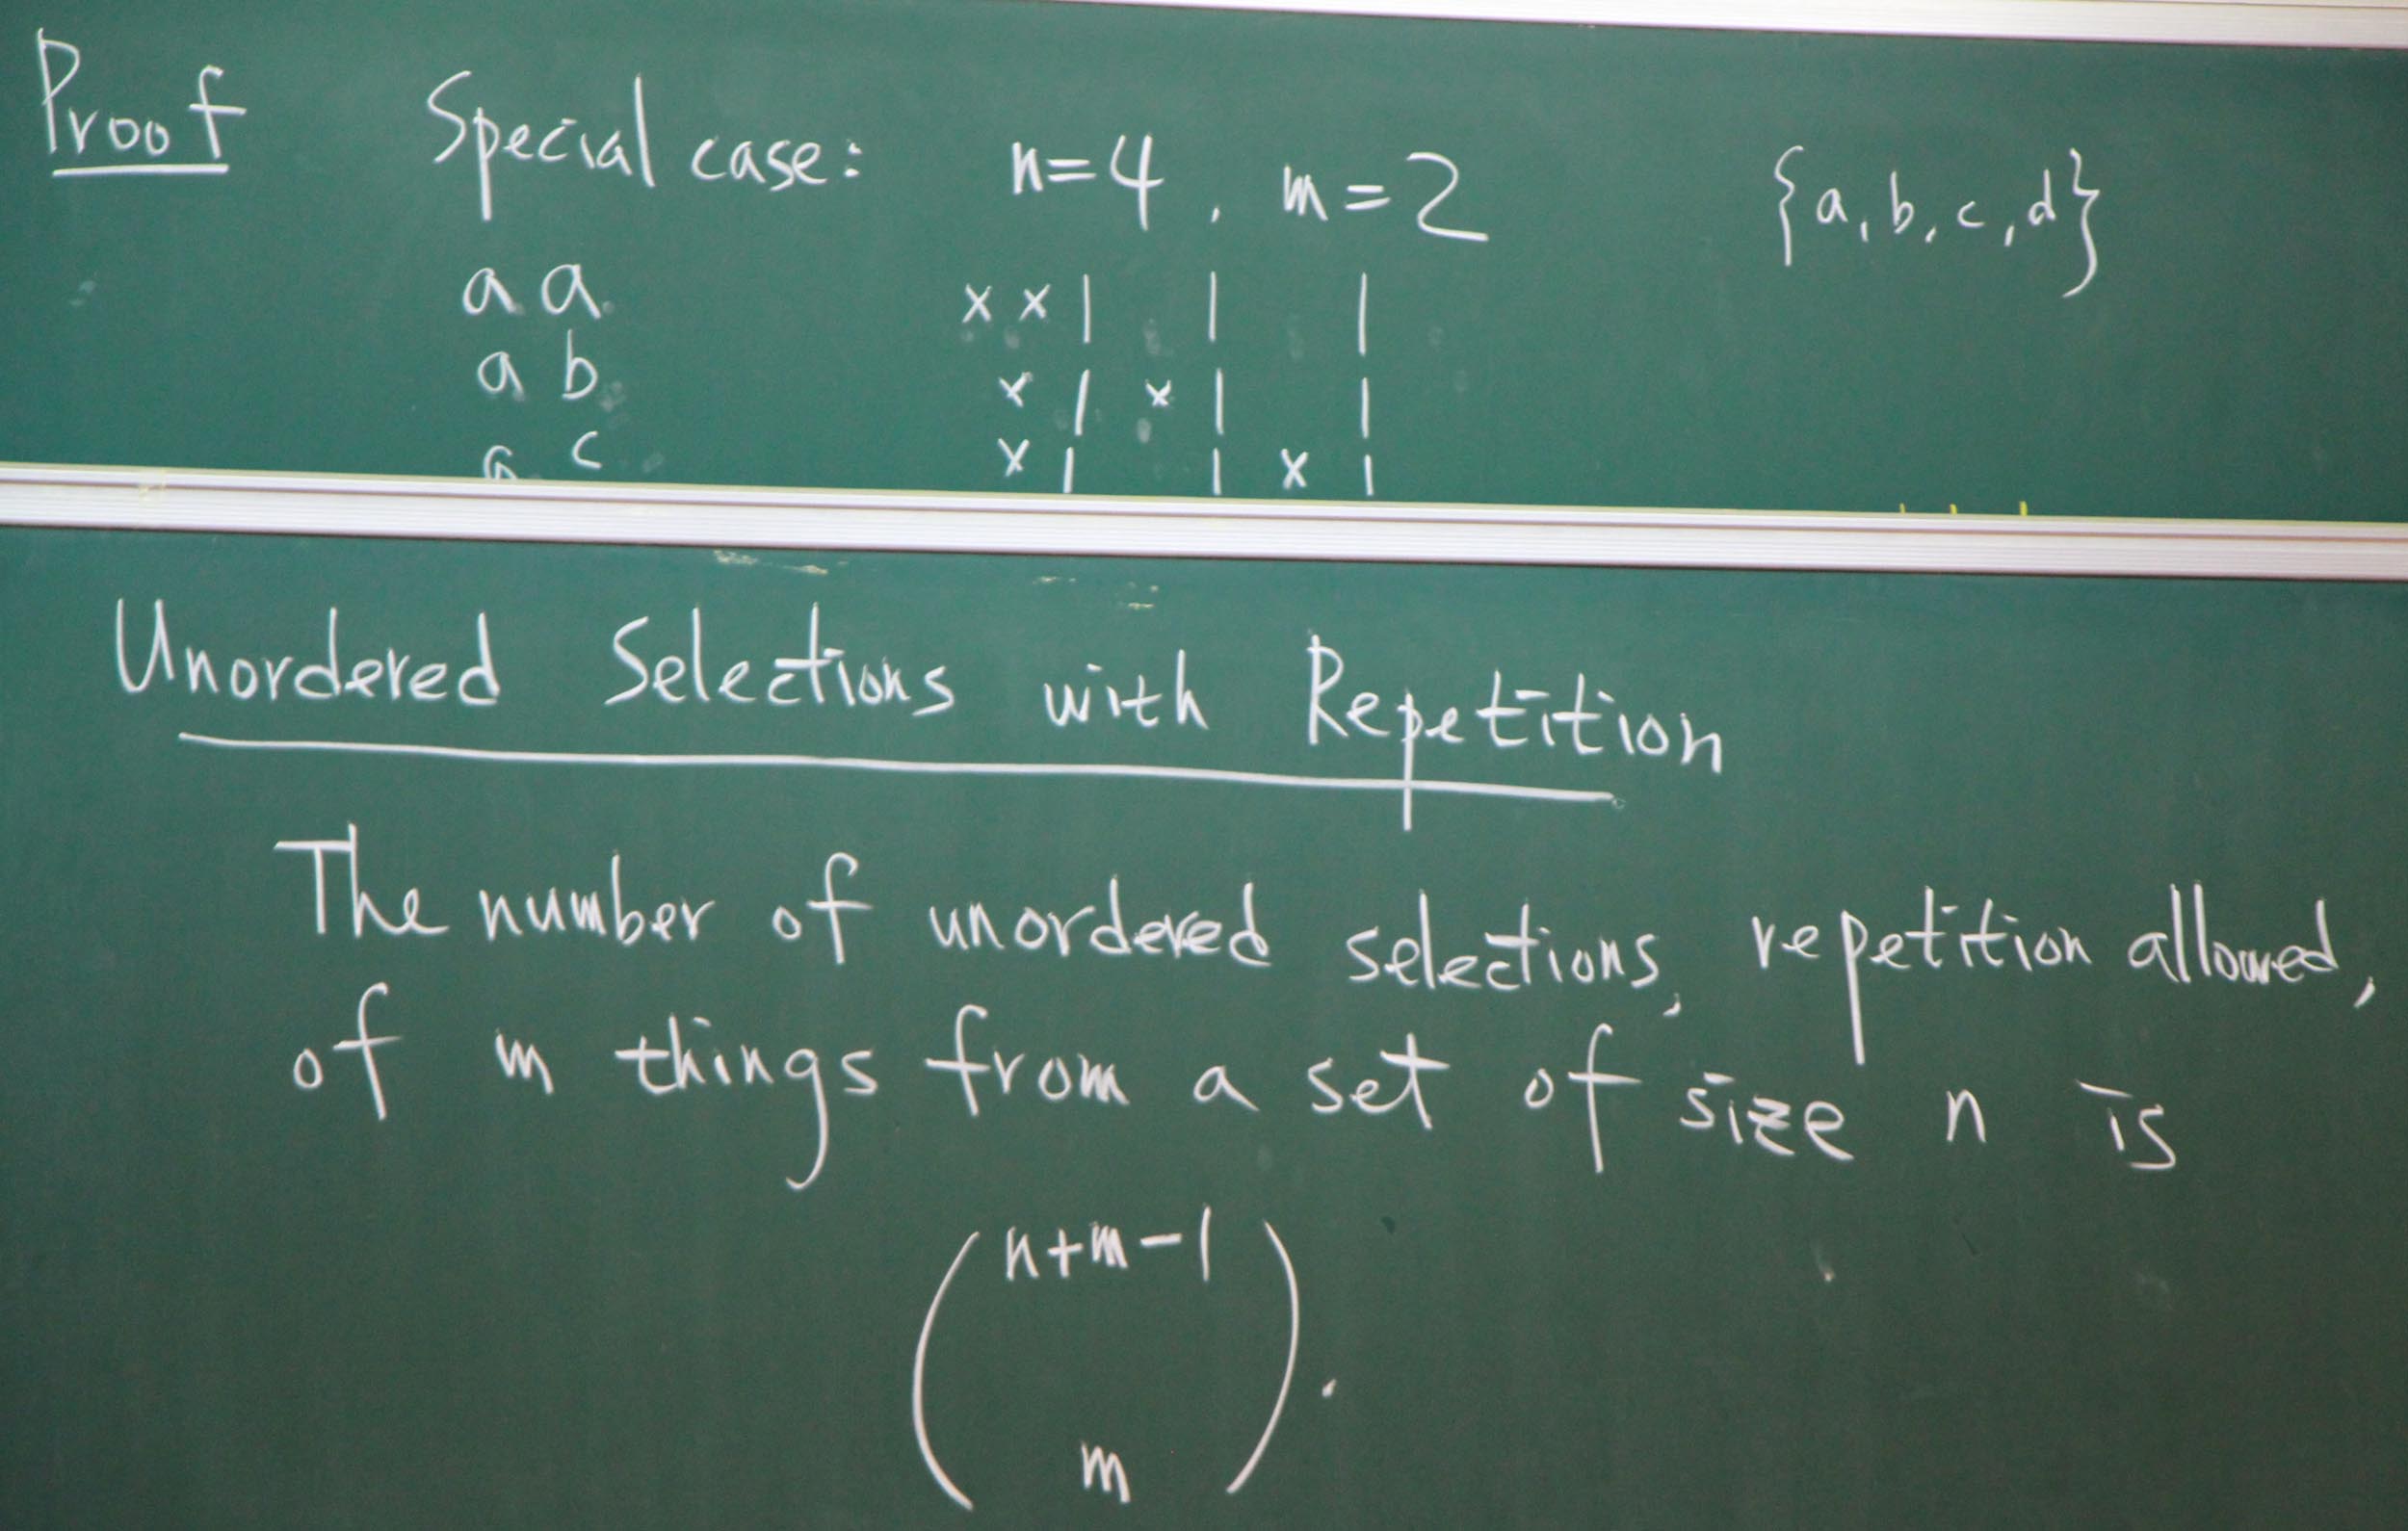 Proof Special case: n=4, m=2 {a,b,c,d}
a a x x | | |
a b x | x | |
a c x | | x |
Unordered Selections with Repetition
The number of unordered selections, repetition allowed,
of m things from a set of size n is
(n+m-1
m).